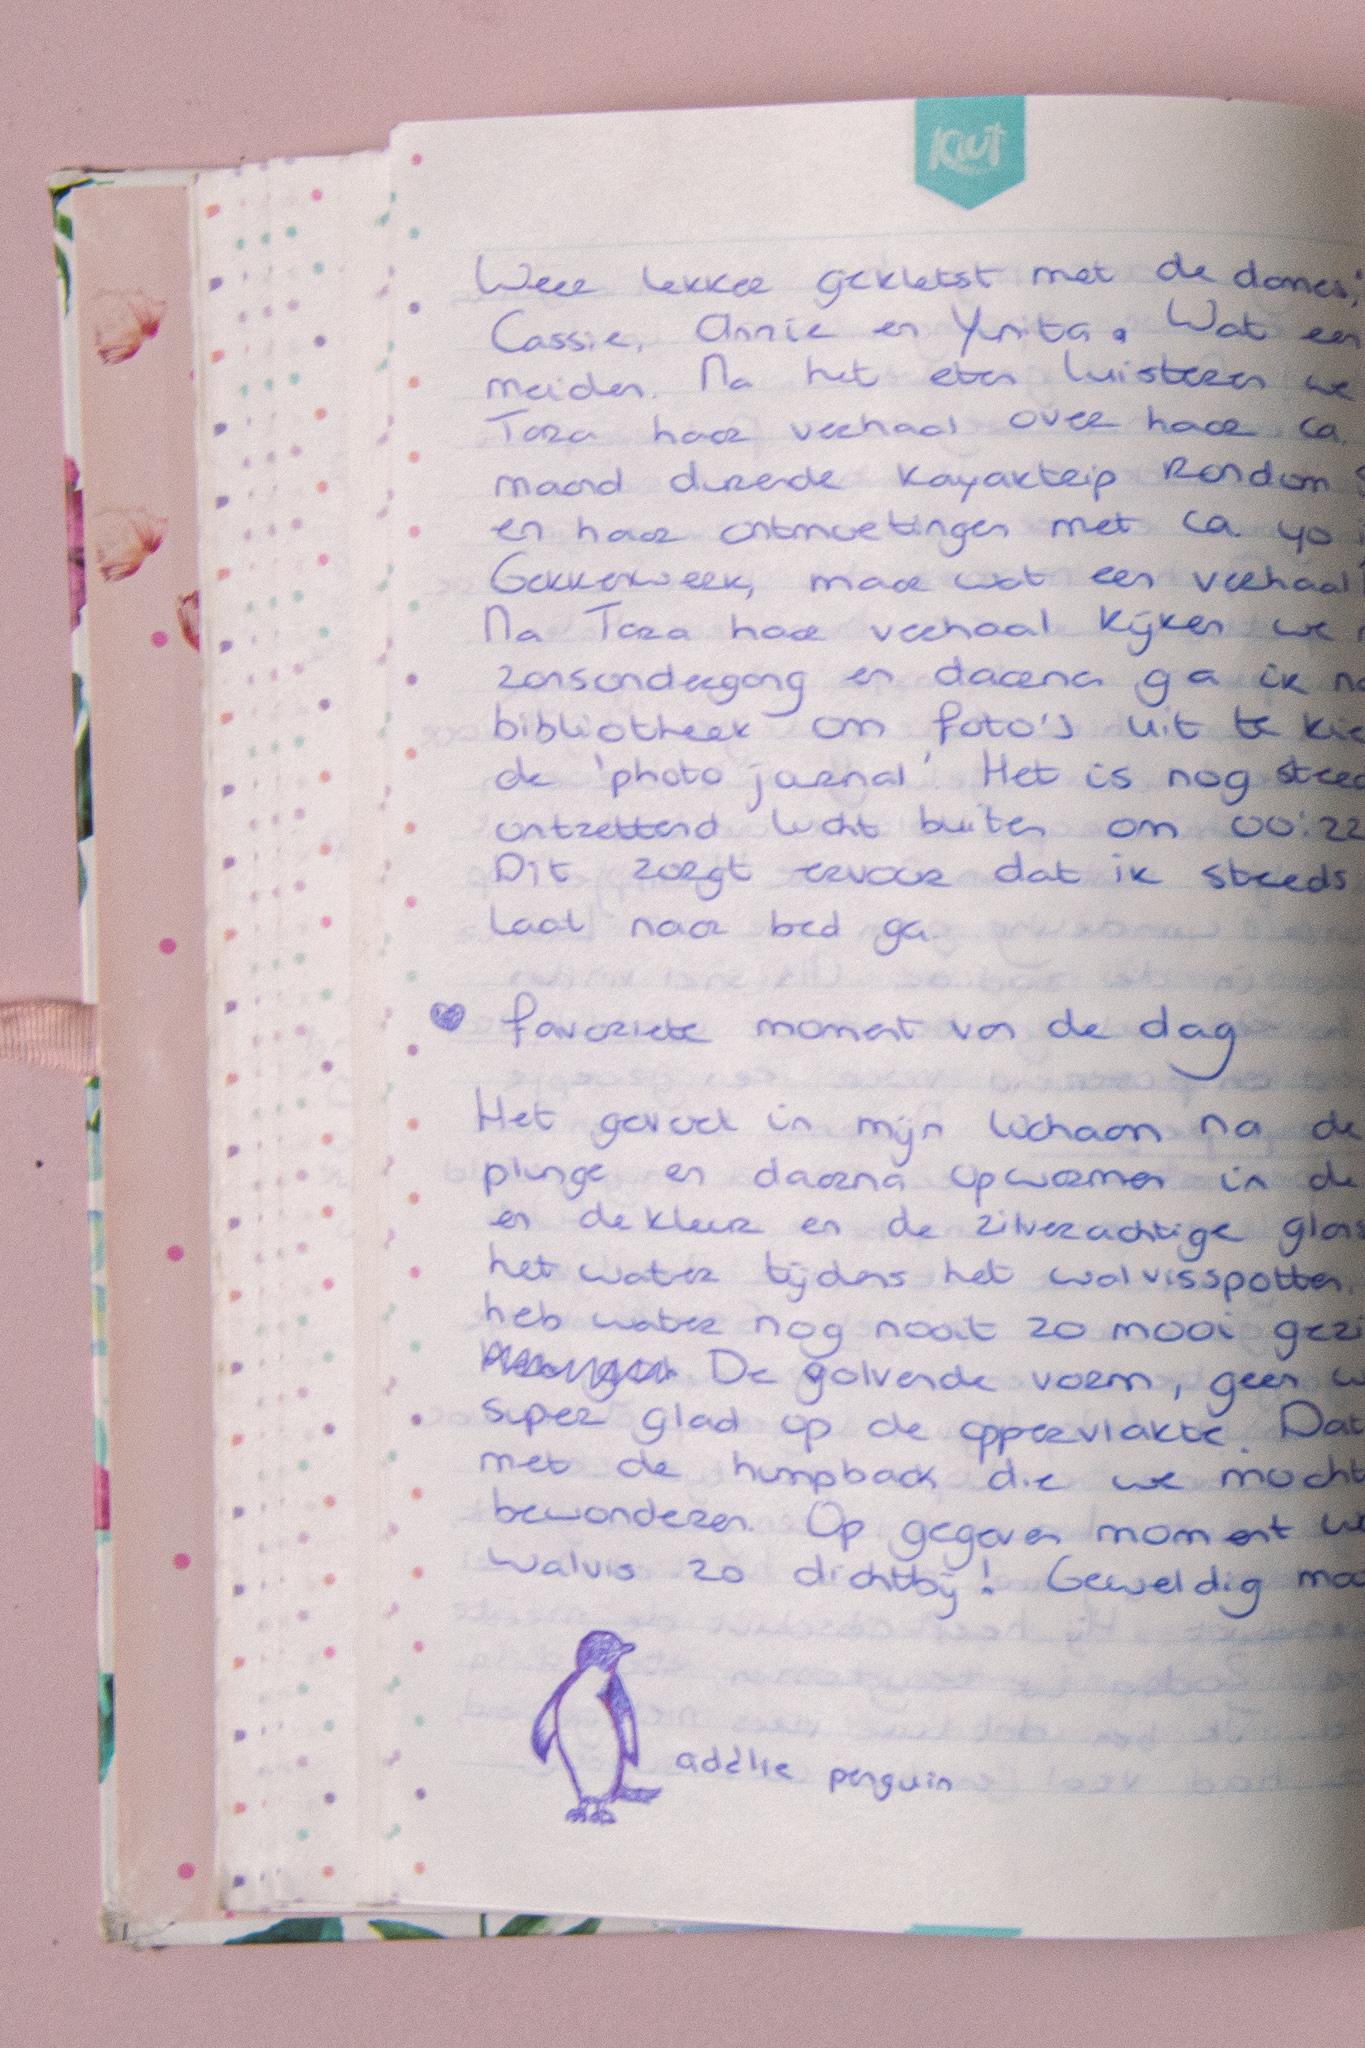 Kiut
Weer lekker gekletst met de dames;
Cassie, Annie en Ynita. Wat een
meiden. Na het eten luisteren we
Tara haar verhaal over haar ca.
maand durende kayaktrip rondom
en haar ontmoetingen met ca 40
Gekkenwerk, maar wat een verhaal
Na Tara haar verhaal kijken we
zonsondergang en daarna ga ik
bibliotheek om foto's uit te
de 'photo journal' Het is nog
ontzettend licht buiten om 00:22
Dit zorgt ervoor dat ik steeds
laat naar bed ga.
favoriete moment van de dag
Het gevoel in mijn lichaam na de
plunge en daarna opwarmen in de
en de kleur en de zilverachtige
het water tijdens het walvisspotten.
heb water nog nooit zo mooi
De golvende vorm, geen
super glad op de oppervlakte. Dat
met de humpback die we
bewonderen. Op gegeven moment
walvis zo dichtbij! Geweldig
addlie penguin